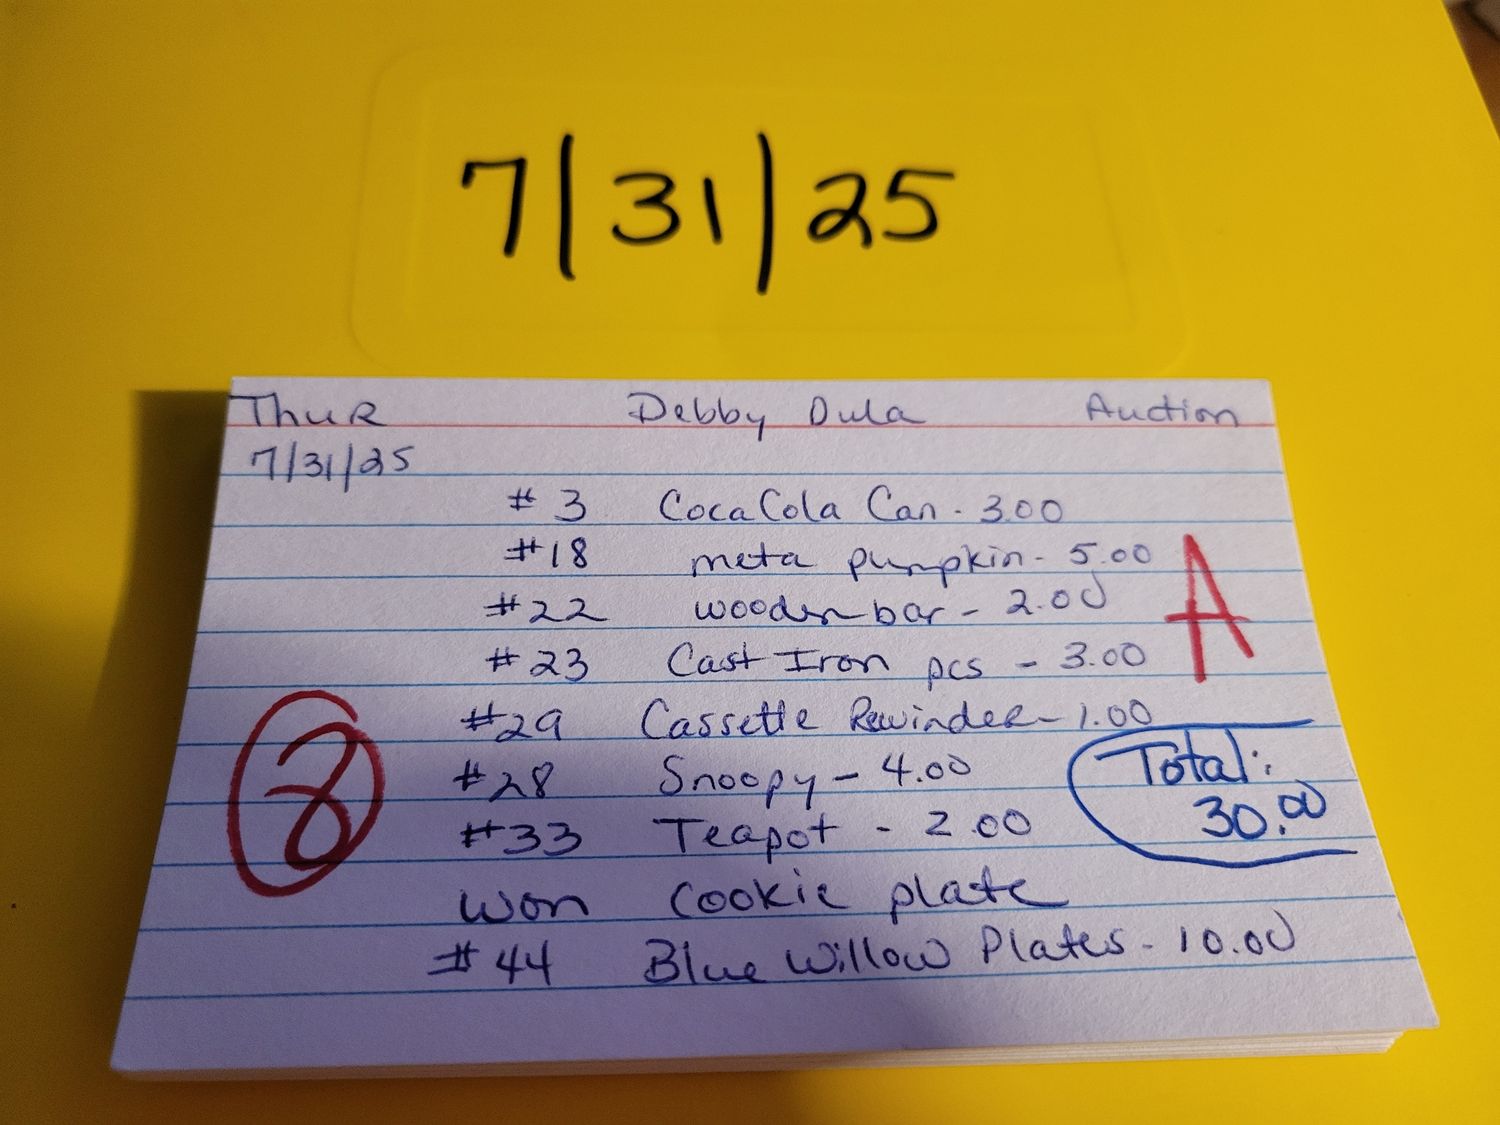 7/31/25
Thur Debby Dula Auction
7/31/25
# 3 CocaCola Can - 3.00
#18 meta pumpkin - 5.00
#22 wooden bar - 2.00
A
#23 Cast Iron pcs - 3.00
#29 Cassette Rewinder - 1.00
#28 Snoopy - 4.00
Total:
30.00
8
#33 Teapot - 2.00
won cookie plate
#44 Blue Willow Plates - 10.00